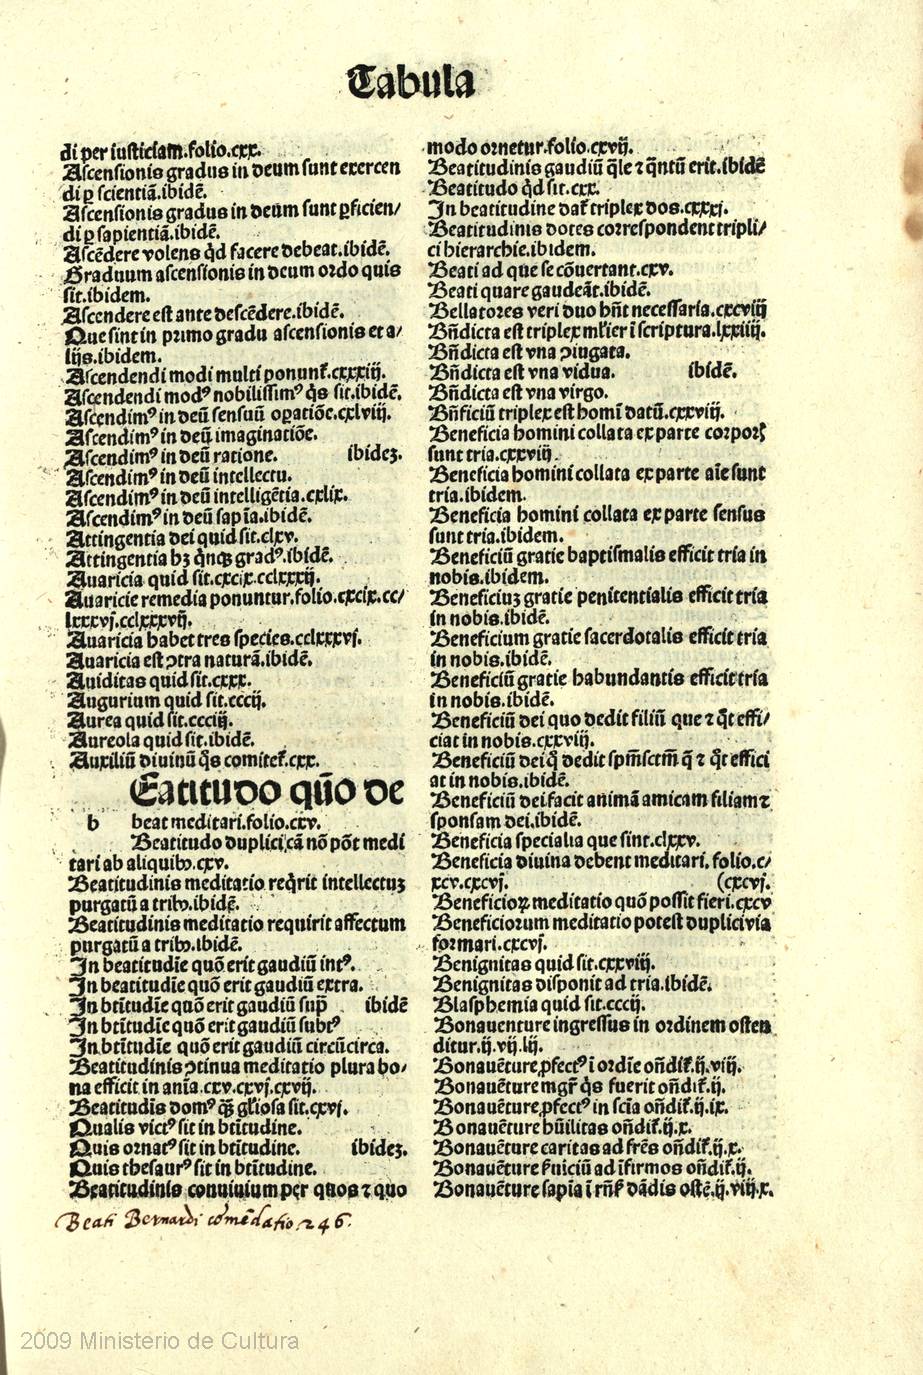 Tabula
di per iusticiam.folio.cxx.
Ascensionis gradus in deum sunt exercen
di ꝑ scientiā.ibidē.
Ascensionis gradus in deum sunt ꝑficien/
di ꝑ sapientiā.ibidē.
Ascēdere volens qd̛ facere debeat.ibidē.
Graduum ascensionis in deum ordo quis
sit.ibidem.
Ascendere est ante descēdere.ibidē.
Que sint in primo gradu ascensionis et a/
lijs.ibidem.
Ascendendi modi multi ponunt᷑.cxxxiij.
Ascendendi modꝰ nobilissimꝰ q̇s sit.ibidē.
Ascendimꝰ in deū sensuū oꝑatiōe.cxlviij.
Ascendimꝰ in deū imaginatiōe.
Ascendimꝰ in deū ratione. ibideꝫ.
Ascendimꝰ in deū intellectu.
Ascendimꝰ in deū intelligētia.cxlix.
Ascendimꝰ in deū sapīa.ibidē.
Attingentia dei quid sit.clxv.
Attingentia hꝫ q̇nqꝫ gradꝰ.ibidē.
Auaricia quid sit.cxcix.cclxxxij.
Auaricie remedia ponuntur.folio.cxcix.cc/
lxxxvj.cclxxxvij.
Auaricia habet tres species.cclxxxvj.
Auaricia est ꝯtra naturā.ibidē.
Auiditas quid sit.cxxx.
Augurium quid sit.cccij.
Aurea quid sit.ccciij.
Aureola quid sit.ibidē.
Auxiliū diuinū q̇s comitet᷑.cxx.
Eatitudo quō de
b beat meditari.folio.cxv.
Beatitudo duplici cā nō pōt medi
tari ab aliquibꝰ.cxv.
Beatitudinis meditatio req̇rit intellectuꝫ
purgatū a tribꝰ.ibidē.
Beatitudinis meditatio requirit affectum
purgatū a tribꝰ.ibidē.
In beatitudīe quō erit gaudiū intꝰ.
In beatitudīe quō erit gaudiū extra.
In btītudīe quō erit gaudiū sup̄ ibidē
In btītudīe quō erit gaudiū subtꝰ
In btītudīe quō erit gaudiū circūcirca.
Beatitudinis ꝯtinua meditatio plura bo/
na efficit in anīa.cxv.cxvj.cxvij.
Beatitudīs domꝰ q̄ꝫ gl̄iosa sit.cxvj.
Qualis victꝰ sit in btītudine.
Quis ornatꝰ sit in btītudine. ibideꝫ.
Quis thesaurꝰ sit in btītudine.
Beatitudinis conuiuium per quos ⁊ quo
Beati Bernardi comēdatio 246.
modo ornetur.folio.cxvij.
Beatitudinis gaudiū q̄le ⁊ q̄ntū erit.ibidē
Beatitudo qd̛ sit.cxx.
In beatitudine dat᷑ triplex dos.cxxxj.
Beatitudinis dotes correspondent tripli/
ci hierarchie.ibidem.
Beati ad que se cōuertant.cxv.
Beati quare gaudeāt.ibidē.
Bellatores veri duo hn̄t necessaria.cxcviij
Bn̄dicta est triplex ml̄ier ī scriptura.lxxiiij.
Bn̄dicta est vna ꝯiugata.
Bn̄dicta est vna vidua. ibidē.
Bn̄dicta est vna virgo.
Bn̄ficiū triplex est homī datū.cxxviij.
Beneficia homini collata ex parte corporꝭ
sunt tria.cxxviij.
Beneficia homini collata ex parte aīe sunt
tria.ibidem.
Beneficia homini collata ex parte sensus
sunt tria.ibidem.
Beneficiū gratie baptismalis efficit tria in
nobis.ibidem.
Beneficiuꝫ gratie penitentialis efficit tria
in nobis.ibidē.
Beneficium gratie sacerdotalis efficit tria
in nobis.ibidē.
Beneficiū gratie habundantis efficit tria
in nobis.ibidē.
Beneficiū dei quo dedit filiū que ⁊ q̄t effi/
ciat in nobis.cxxviij.
Beneficiū dei q̄ dedit spm̄sctm̄ q̄ ⁊ q̄t effici
at in nobis.ibidē.
Beneficiū dei facit animā amicam filiam ⁊
sponsam dei.ibidē.
Beneficia specialia que sint.clxxv.
Beneficia diuina debent meditari.folio.c/
xcv.cxcvj. (cxcvj.
Beneficioꝝ meditatio quō possit fieri.cxcv
Beneficiorum meditatio potest duplici via
formari.cxcvj.
Benignitas quid sit.cxxviij.
Benignitas disponit ad tria.ibidē.
Blasphemia quid sit.cccij.
Bonauenture ingressus in ordinem osten
ditur.ij.vij.lij.
Bonauēture ꝓfectꝰ ī ordīe on̄dit᷑.ij.viij.
Bonauēture mgr̄ q̇s fuerit on̄dit᷑.ij.
Bonauēture ꝓfectꝰ in scīa on̄dit᷑.ij.ix.
Bonauēture hūilitas on̄dit᷑.ij.x.
Bonauēture caritas ad frēs on̄dit᷑.ij.x.
Bonauēture ẜuiciū ad īfirmos on̄dit᷑.ij.
Bonauēture sapīa ī rn̄ẜ dādis ostē.ij.viij.x.
2009 Ministerio de Cultura